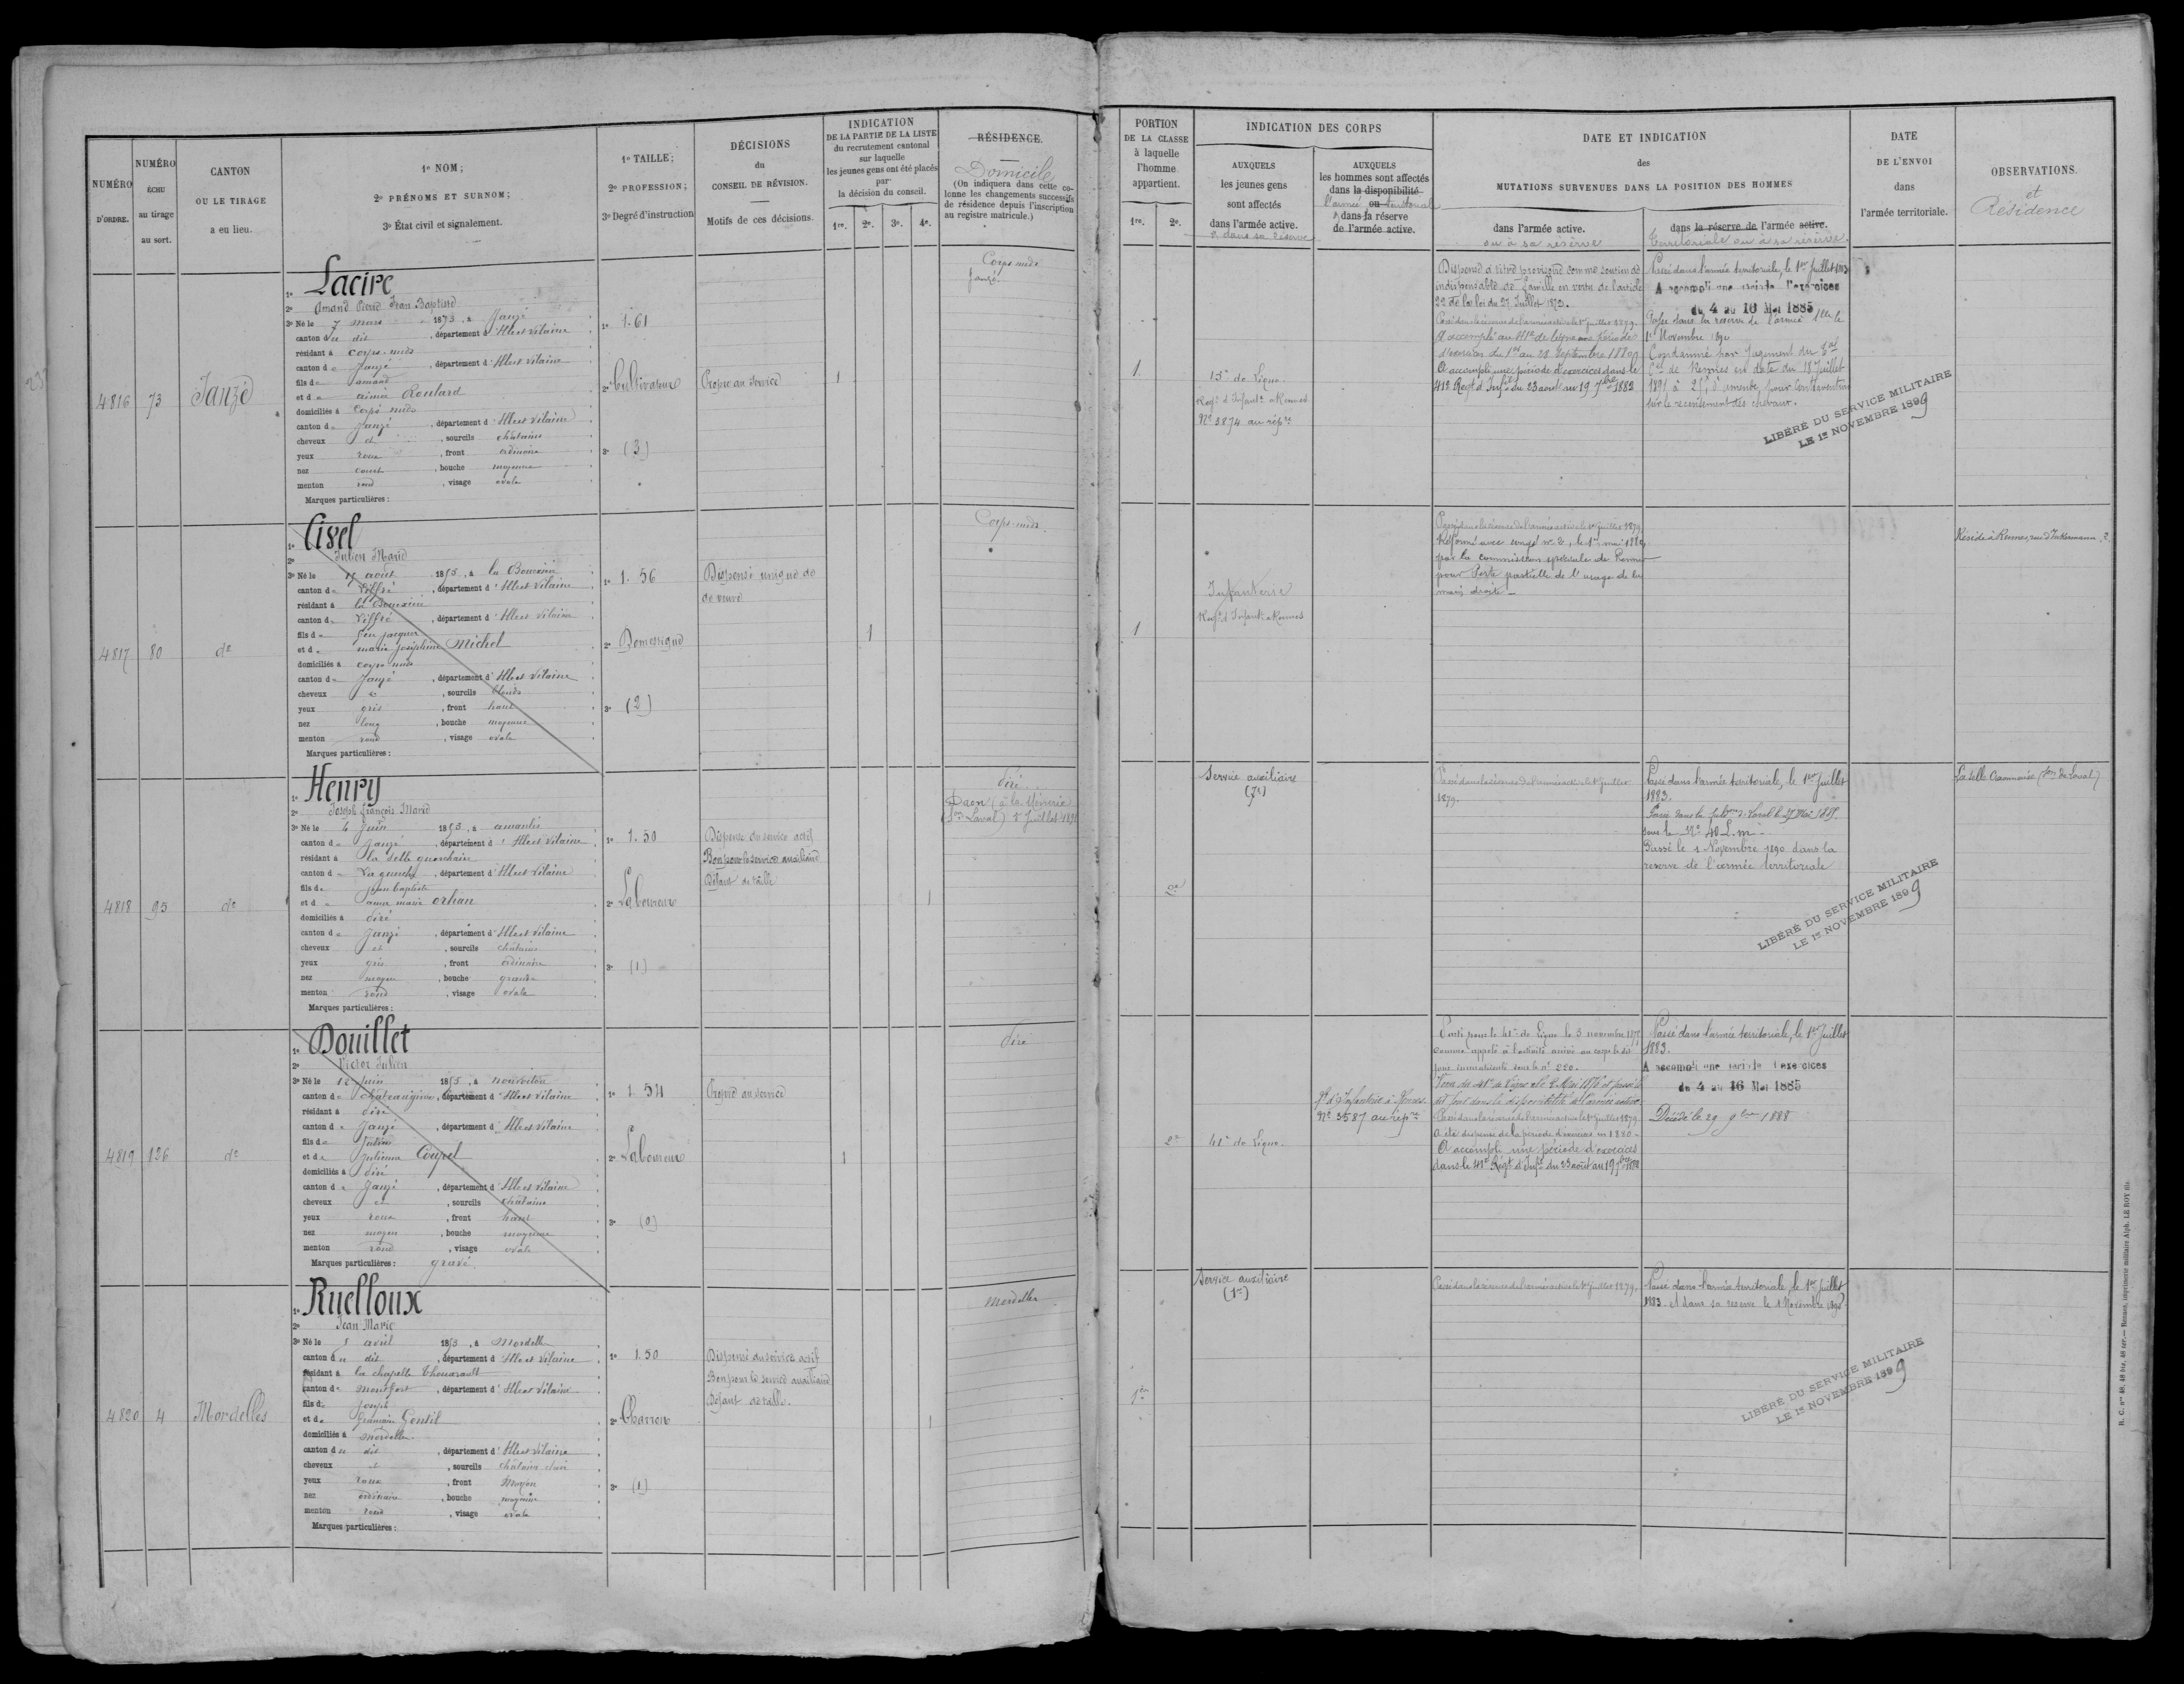 NUMÉRO
D'ORDRE.
NUMÉRO
ÉCHU
au tirage
au sort.
CANTON
OU LE TIRAGE
a eu lieu.
1º NOM;
2º PRÉNOMS ET SURNOM;
3º État civil et signalement.
1º TAILLE;
2º PROFESSION;
3º Degré d'instruction
DÉCISIONS
du
CONSEIL DE RÉVISION.
Motifs de ces décisions.
INDICATION
DE LA PARTIE DE LA LISTE
du recrutement cantonal
sur laquelle
les jeunes gens ont été placés
par
la décision du conseil.
1re. 2e. 3e. 4e.
RÉSIDENCE.
Domicile
(On indiquera dans cette co-
lonne les changements successifs
de résidence depuis l'inscription
au registre matricule.)
PORTION
DE LA CLASSE
à laquelle
l'homme
appartient.
1re. 2e.
INDICATION DES CORPS
AUXQUELS
les jeunes gens
sont affectés
dans l'armée active.
& dans sa réserve
AUXQUELS
les hommes sont affectés
dans la disponibilité
l'armée ou territoriale
& dans la réserve
de l'armée active.
DATE ET INDICATION
des
MUTATIONS SURVENUES DANS LA POSITION DES HOMMES
dans l'armée active.
ou à sa réserve
dans la réserve de l'armée active.
Territoriale ou à sa réserve.
DATE
DE L'ENVOI
dans
l'armée territoriale.
OBSERVATIONS.
et
Résidence
4816 73 Janzé
1º Lacire
2º Amand Pierre Jean Baptiste
3º Né le 7 mars 1873, à Janzé
canton de dit, département d'Ille et Vilaine
résidant à corps-nuds
canton de Janzé, département d'Ille et Vilaine
fils de amand
et de aimée Roulard
domiciliés à Corps nuds
canton de Janzé, département d'Ille et Vilaine
cheveux et, sourcils châtains
yeux roux, front ordinaire
nez court, bouche moyenne
menton rond, visage ovale
Marques particulières :
1º 1.61
2º Cultivateur
3º (3)
Propre au service
1
Corps-nuds
Janzé
1
15e de Ligne.
Regt d'Infantie à Rennes
No 5874 au répre
Dispensé à titre provisoire comme soutien
indispensable de famille en vertu de l'article
22 de la loi du 27 Juillet 1872.
Passé dans la réserve de l'armée active le 1er juillet 1879.
A accompli au 41e de ligne une période
d'exercices du 1er au 28 Septembre 1880.
A accompli une période d'exercices dans le
41e Régt d'Infie du 23 août au 19 7bre 1882
Passé dans l'armée territoriale, le 1er Juillet 1883
A accompli une période d'exercices
du 4 au 16 Mai 1885
Passé dans la réserve de l'armée Tlle le
1er Novembre 1890
Condamné par Jugement du Tal
Cel de Rennes en date du 18 Juillet
1891 à 25f d'amende pour contravention
sur le recensement des chevaux.
LIBÉRÉ DU SERVICE MILITAIRE
LE 1er NOVEMBRE 1899
4817 80 do
1º Cisel
2º Julien Marie
3º Né le 17 août 1855, à la Bouexière
canton de Liffré, département d'Ille et Vilaine
résidant à la Bouexière
canton de Liffré, département d'Ille et Vilaine
fils de feu jacques
et de marie joséphine Michel
domiciliés à corps nuds
canton de Janzé, département d'Ille et Vilaine
cheveux et, sourcils blonds
yeux gris, front haut
nez long, bouche moyenne
menton rond, visage ovale
Marques particulières :
1º 1.56
2º Domestique
3º (2)
Dispensé unique de
de veuve
1
Corps-nuds
1
Infanterie
Regt d'Infantie à Rennes
Passé dans la réserve de l'armée active le 1er juillet 1879
Réformé avec congé no 2, le 1er mai 1882
par la commission spéciale de Rennes
pour Perte partielle de l'usage de la
main droite
Réside à Rennes, rue d'Inkermann, 2
4818 95 do
1º Henry
2º Joseph François Marie
3º Né le 4 Juin 1853, à amanlis
canton de Janzé, département d'Ille et Vilaine
résidant à la Selle guerchaise
canton de La guerche, département d'Ille et Vilaine
fils de jean baptiste
et de anne marie orhan
domiciliés à piré
canton de Janzé, département d'Ille et Vilaine
cheveux et, sourcils châtains
yeux gris, front ordinaire
nez moyen, bouche grande
menton rond, visage ovale
Marques particulières :
1º 1.50
2º Laboureur
3º (1)
Dispensé du service actif
Bon pour le service auxiliaire
Défaut de taille
1
Piré
2e
Service auxiliaire
Passé dans la réserve de l'armée active le 1er juillet
1879.
Passé dans l'armée territoriale, le 1er Juillet
1883.
sous le No 40 L.m
Passé le 1 Novembre 1890 dans la
reserve de l'armée territoriale
LIBÉRÉ DU SERVICE MILITAIRE
LE 1er NOVEMBRE 1899
La Selle Craonnaise (Son de Laval)
4819 126 do
1º Douillet
2º Victor Julien
3º Né le 12 juin 1855, à nouvoitou
canton de châteaugiron, département d'Ille et Vilaine
résidant à piré
canton de Janzé, département d'Ille et Vilaine
fils de Julien
et de Julienne Coupel
domiciliés à piré
canton de Janzé, département d'Ille et Vilaine
cheveux et, sourcils châtains
yeux roux, front haut
nez moyen, bouche moyenne
menton rond, visage ovale
Marques particulières : gravé.
1º 1.54
2º Laboureur
3º (0)
Propre au service
1
Piré
2e
41e de Ligne.
Rt d'Infanterie à Rennes.
No 3587 au répre
Parti pour le 41e de Ligne le 5 novembre 1876
comme appelé à l'activité arrivé au corps le dit
jour immatriculé sous le no
dit jour dans la disponibilité de l'armée active
Passé dans la réserve de l'armée active le 1er juillet 1879.
A été dispensé de la période d'exercices en 1880
A accompli une période d'exercices
dans le 41e Régt d'Infie du 23 août au 19 7bre 1882
Passé dans l'armée territoriale, le 1er Juillet
1883.
A accompli une période d'exercices
du 4 au 16 Mai 1885
Décédé le 29 9bre 1888
4820 4 Mordelles
1º Ruelloux
2º Jean Marie
3º Né le 5 avril 1855, à Mordelles
canton de dit, département d'Ille et Vilaine
résidant à la chapelle thouarault
canton de Montfort, département d'Ille et Vilaine
fils de joseph
et de françoise Gentil
domiciliés à mordelles.
canton de dit, département d'Ille et Vilaine
cheveux et, sourcils châtains clair
yeux roux, front Moyen
nez ordinaire, bouche moyenne
menton rond, visage ovale
Marques particulières :
1º 1.50
2º Charron
3º (1)
Dispensé du service actif
Bon pour le service auxiliaire
Défaut de taille.
1
Mordelles
1re
Service auxiliaire
(1re)
Passé dans la réserve de l'armée active le 1er juillet 1879.
Passé dans l'armée territoriale, le 1er Juillet
1883. et dans sa reserve le 1 Novembre 1890
LIBÉRÉ DU SERVICE MILITAIRE
LE 1er NOVEMBRE 1899
R. C. nos 40, 48 bis, 48 ter. — Rennes, imprimerie militaire Alph. LE ROY fils